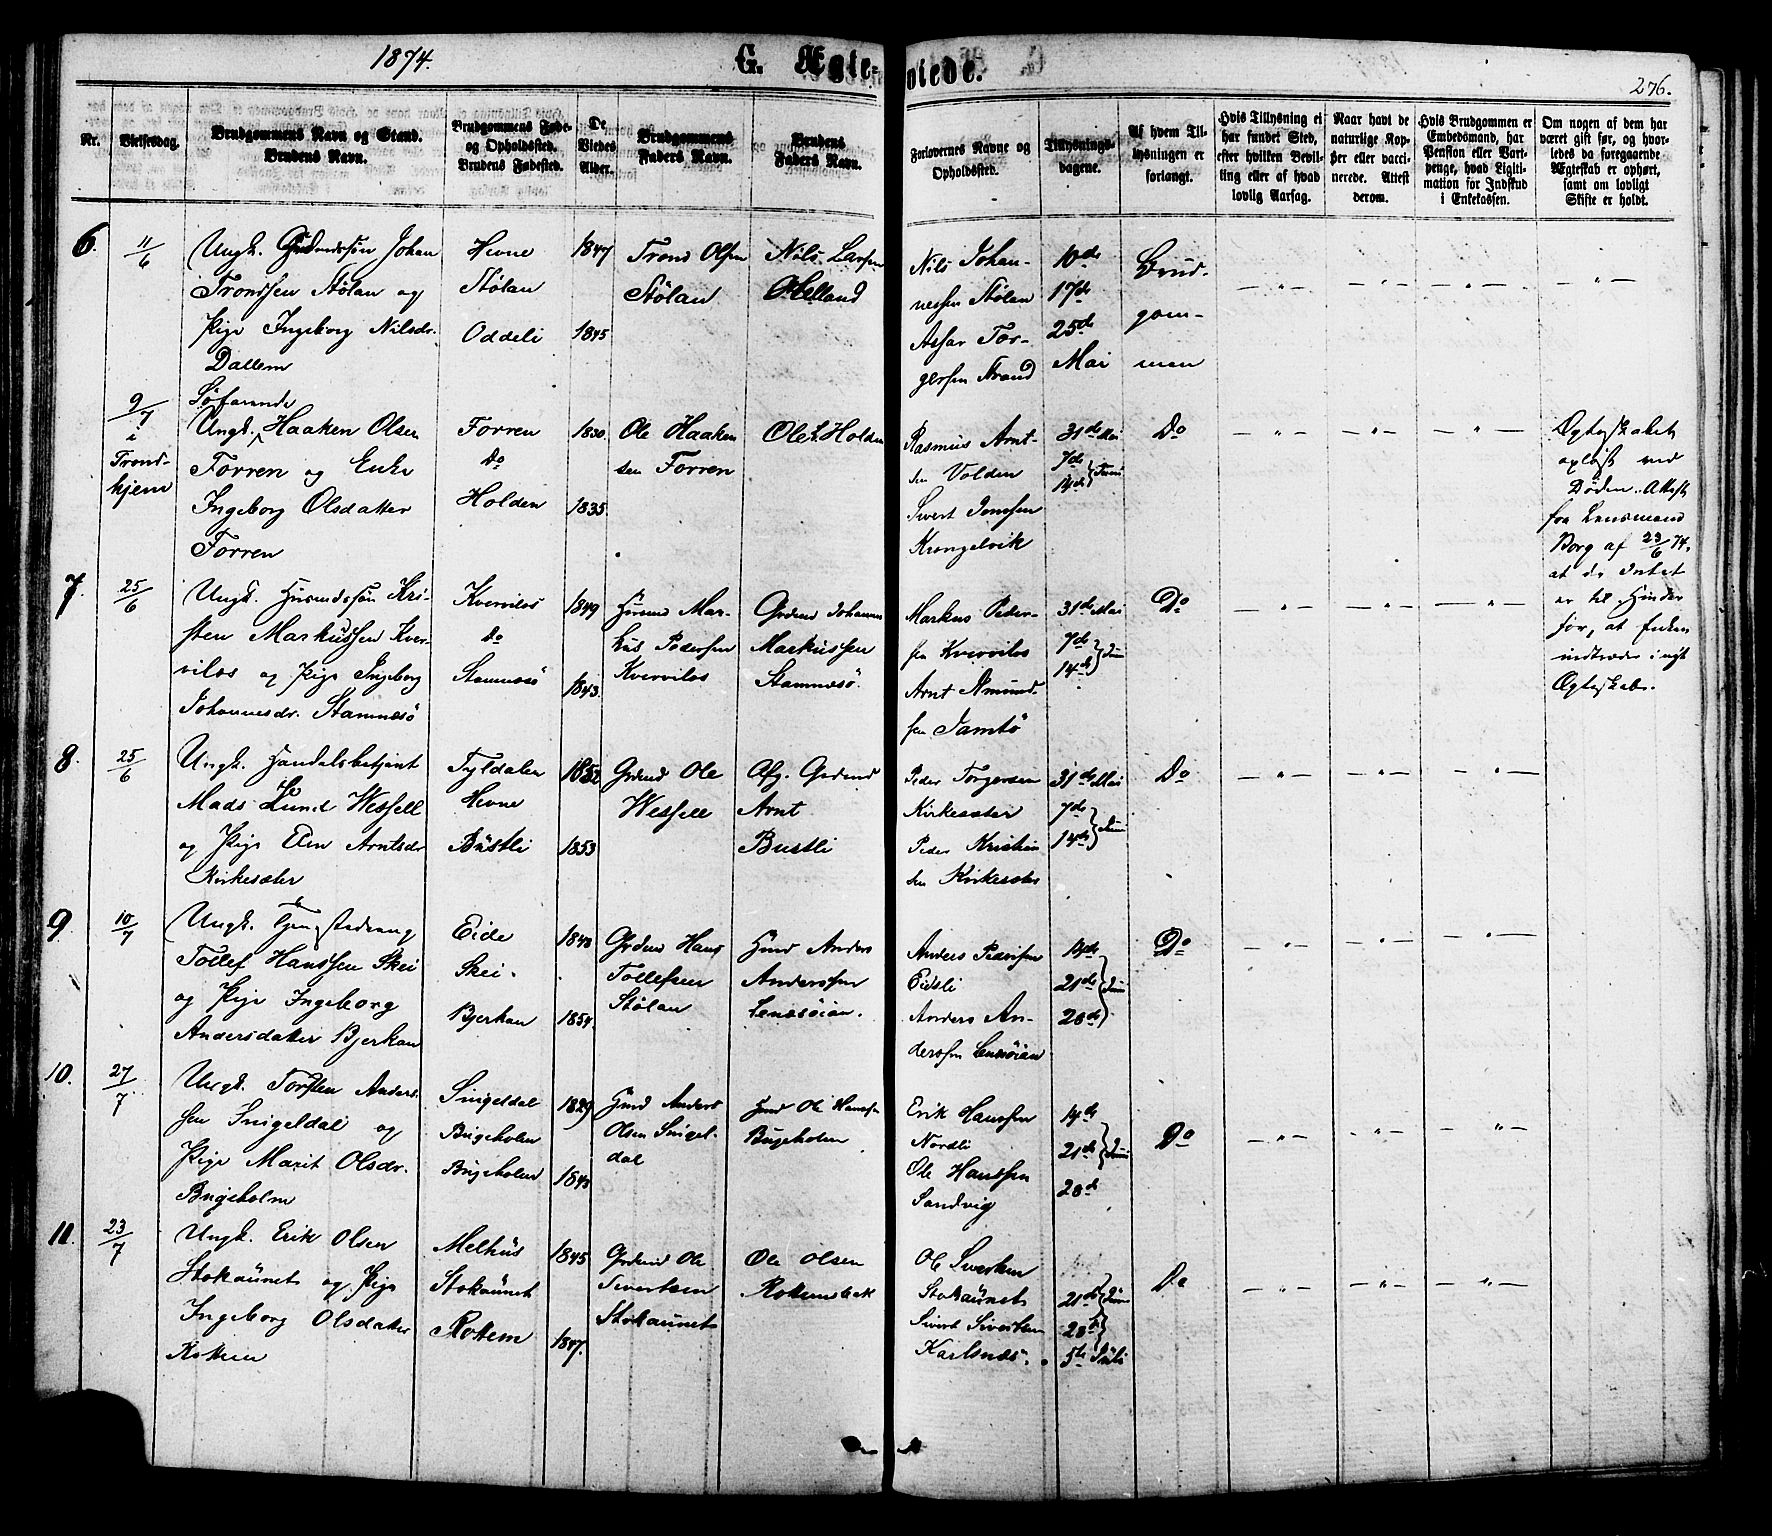 1874.
G. Ægte-
viede.
276.
Nr.
Vielsesdag.
Brudgommens Navn og Stand.
Brudens Navn.
Brudgommens Føde-
og Opholdssted.
Brudens Fødested.
De
Viedes
Alder.
Brudgommens
Faders Navn.
Brudens
Faders Navn.
Forlovernes Navne og
Opholdssted.
Tillysnings-
dagene.
Af hvem Til-
lysningen er
forlangt.
Hvis Tillysning ei
har fundet Sted,
efter hvilken Bevil-
ling eller af hvad
lovlig Aarsag.
Naar havt de
naturlige Kop-
per eller vacci-
nerede. Attest
derom.
Hvis Brudgommen er
Embedsmand, har
Pension eller Vart-
penge, hvad Ligiti-
mation for Indskud
i Enkekassen.
Om nogen af dem har
været gift før, og hvor-
ledes da foregaaende
Ægteskab er ophørt,
samt om lovligt
Skifte er holdt.
6.
11/6
Ungk. Johan
Trondsen Stølan og
Pige Ingeborg Nilsdr.
Dallem
Hevne
Stølan
Oddeli
1847
1845
Trond Olsen
Stølan
Nils Larsen
Helland
Nils Johan-
nessen Stølan
Assar Tor-
gersen Strand
10de
17de
25de
Mai
Brud-
gom-
men
— " —
— " —
— " —
— " —
9/7
i
Trond-
hjem
Søfarende
Ungk. Haaken Olsen
Forren og Enke
Ingeborg Olsdatter
Forren
Forren
Do
Holden
1830.
1835.
Ole Haaken
sen Forren
Ole L. Holden
Rasmus Arnt-
sen Volden
Sivert Jonssen
Krongelvik
31de Mai
7de
14de } Juni
Do
— " —
— " —
— " —
Egteskabet
opløst ved
Døden. Attest
fra Lensmand
Borg af 23/6 74,
at der Intet
er til Hinder
for, at Enken
indtræder i nyt
Egteskab.
7.
25/6
Ungk. Husmdssøn Kri-
sten Markussen Kver-
vilos og Pige Ingeborg
Johannesdr. Stamnesö
Kvervilos
Do
Stamnesö
1849
1843.
Husmd Mar-
kus Pedersen
Kvervilos
Grdmd Johannes
Markussen
Stamnesö.
Markus Peder-
sen Kvervilos
Arnt Amund-
sen Jamtö
31de Mai
7de
14de } Juni
Do
— " —
— " —
— " —
8.
25/6
Ungk. Handelsbetjent
Mads Lund Wessell
og Pige Elen Arntsdr
Kirkesæter
Tyldalen
Hevne
Bustli
1852
1853
Grdmd Ole
Wessell
Afg. Grdmd
Arnt
Bustli
Peder Torgersen
Kirkesæter
Peder Kristian
sen Kirkesæter
31de Mai
7de
14de } Juni
Do
— " —
— " —
— " —
9.
10/7
Ungk.
Tollef Hanssen Skei
og Pige Ingeborg
Andersdatter Bjerkan
Eide
Skei.
Bjerkan
1840
1854.
Grdmd Hans
Tollefsen
Stølan
Hmd Anders
Anderssen
Lenesøian.
Anders Pedersen
Eidsli
Anders An-
derssen Lenesøian
14de
21de
28de } Juni
Do
— " —
— " —
— " —
10.
27/7
Ungk. Torsten Anders-
sen Snigeldal og
Pige Marit Olsdr.
Bugeholm
Snigeldal
Bugeholm
Bugeholm
1829
1843
Hmd Anders
Olsen Snigel-
dal
Hmd Ole Hanssen
Bugeholm
Erik Hanssen
Nordli
Ole Hanssen
Sandvig
14de
21de } Juni
28de
Do
— " —
— " —
— " —
11.
23/7
Ungk. Erik Olsen
Stokaunet og Pige
Ingeborg Olsdatter
Rokem
Melhus
Stokaunet
Rokem
1845
1847.
Grdmd Ole
Sivertsen
Stokaunet
Ole Olsen
Ole Sivertsen
Stokaunet
Sivert Sivertsen
Karlsnæs.
21de } Juni
28de
5te Juli
Do
— " —
— " —
— " —